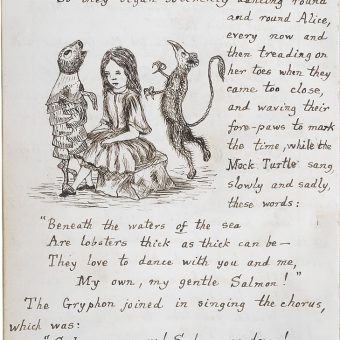 So they began solemnly dancing round
and round Alice,
every now and
then treading on
her toes when they
came too close,
and waving their
fore-paws to mark
the time, while the
Mock Turtle sang,
slowly and sadly,
these words:
"Beneath the waters of the sea
Are lobsters thick as thick can be—
They love to dance with you and me,
My own, my gentle Salmon!"
The Gryphon joined in singing the chorus,
which was: